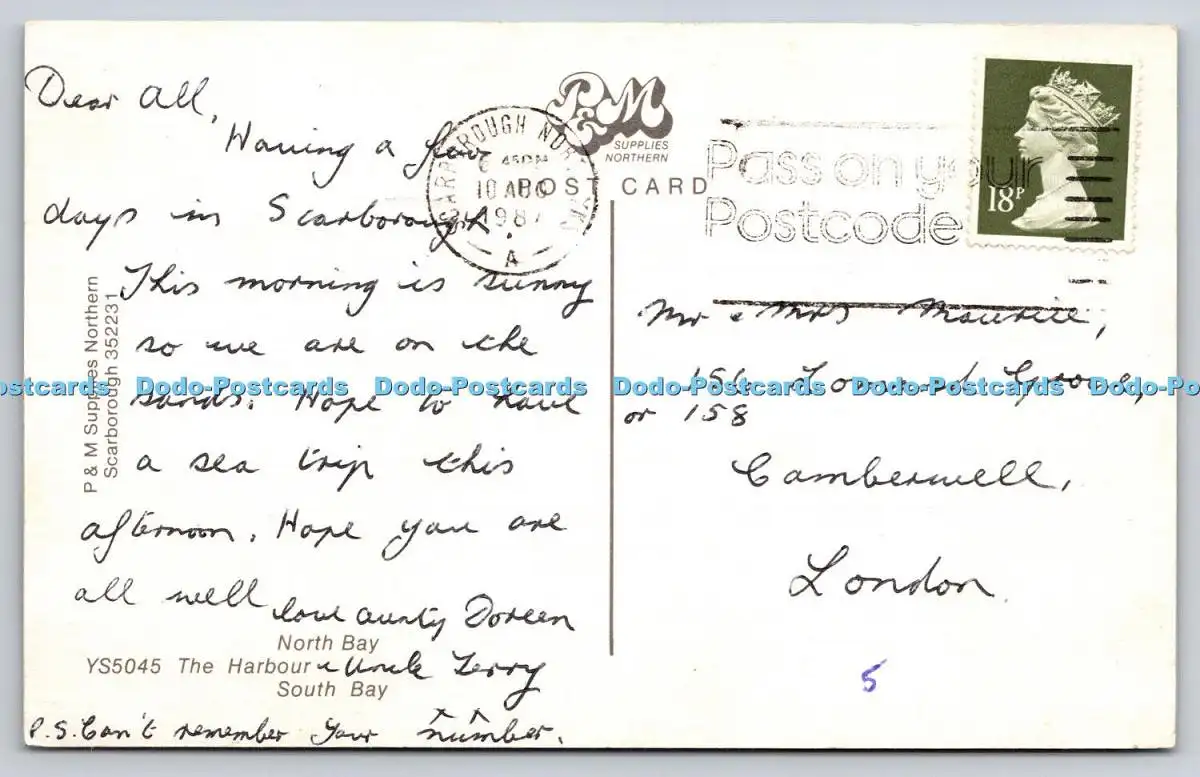 Dear All,
Having a few
days in Scarborough.
This morning is sunny
so we are on the
sands. Hope to have
a sea trip this
afternoon. Hope you are
all well
love Aunty Doreen
& Uncle Terry
P.S. Can't remember your number.
P & M Supplies Northern
Scarborough 352231
North Bay
YS5045 The Harbour
South Bay
P&M
SUPPLIES
NORTHERN
POST CARD
SCARBOROUGH NOR
45PM
10 AUG
1987
A
Pass on your
Postcode
18P
Mr & Mrs Maurice,
156 Grove,
or 158
Camberwell,
London.
5
Dodo-Postcards Dodo-Postcards Dodo-Postcards Dodo-Postcards Dodo-Postcards Dodo-Postcards